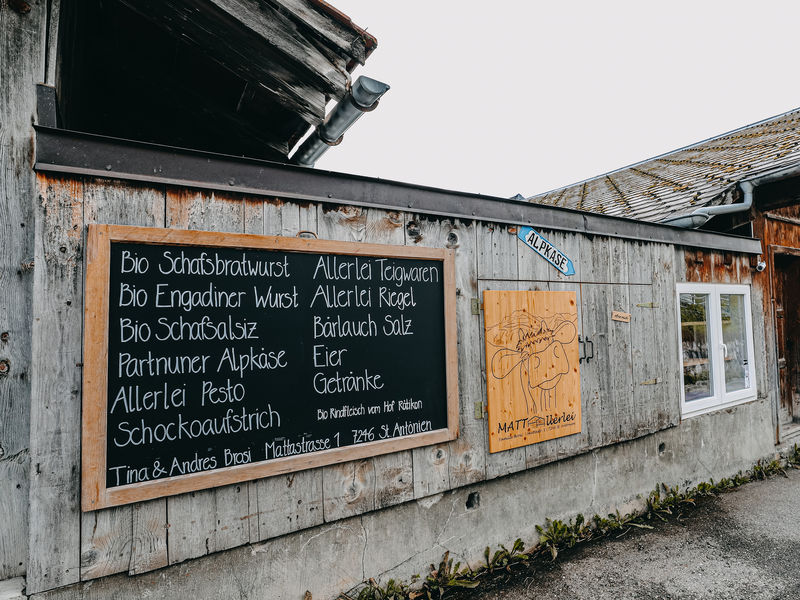 Bio Schafsbratwurst
Bio Engadiner Wurst
Bio Schafsalsiz
Partnuner Alpkäse
Allerlei Pesto
Schockoaufstrich
Allerlei Teigwaren
Allerlei Riegel
Bärlauch Salz
Eier
Getränke
Bio Rindfleisch vom Hof Rätikon
Tina & Andres Brosi Mattastrasse 1 7246 St. Antönien
ALPKÄSE
MATTAllerlei